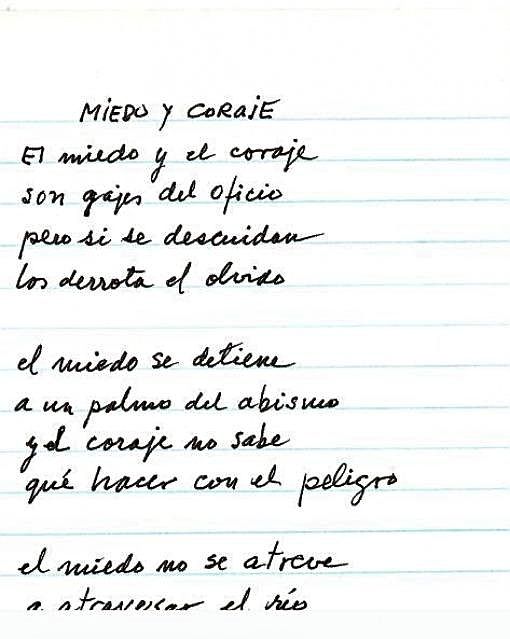 MIEDO Y CORAJE
El miedo y el coraje
son gajes del oficio
pero si se descuidan
los derrota el olvido
el miedo se detiene
a un palmo del abismo
y el coraje no sabe
qué hacer con el peligro
el miedo no se atreve
a atravesar el río